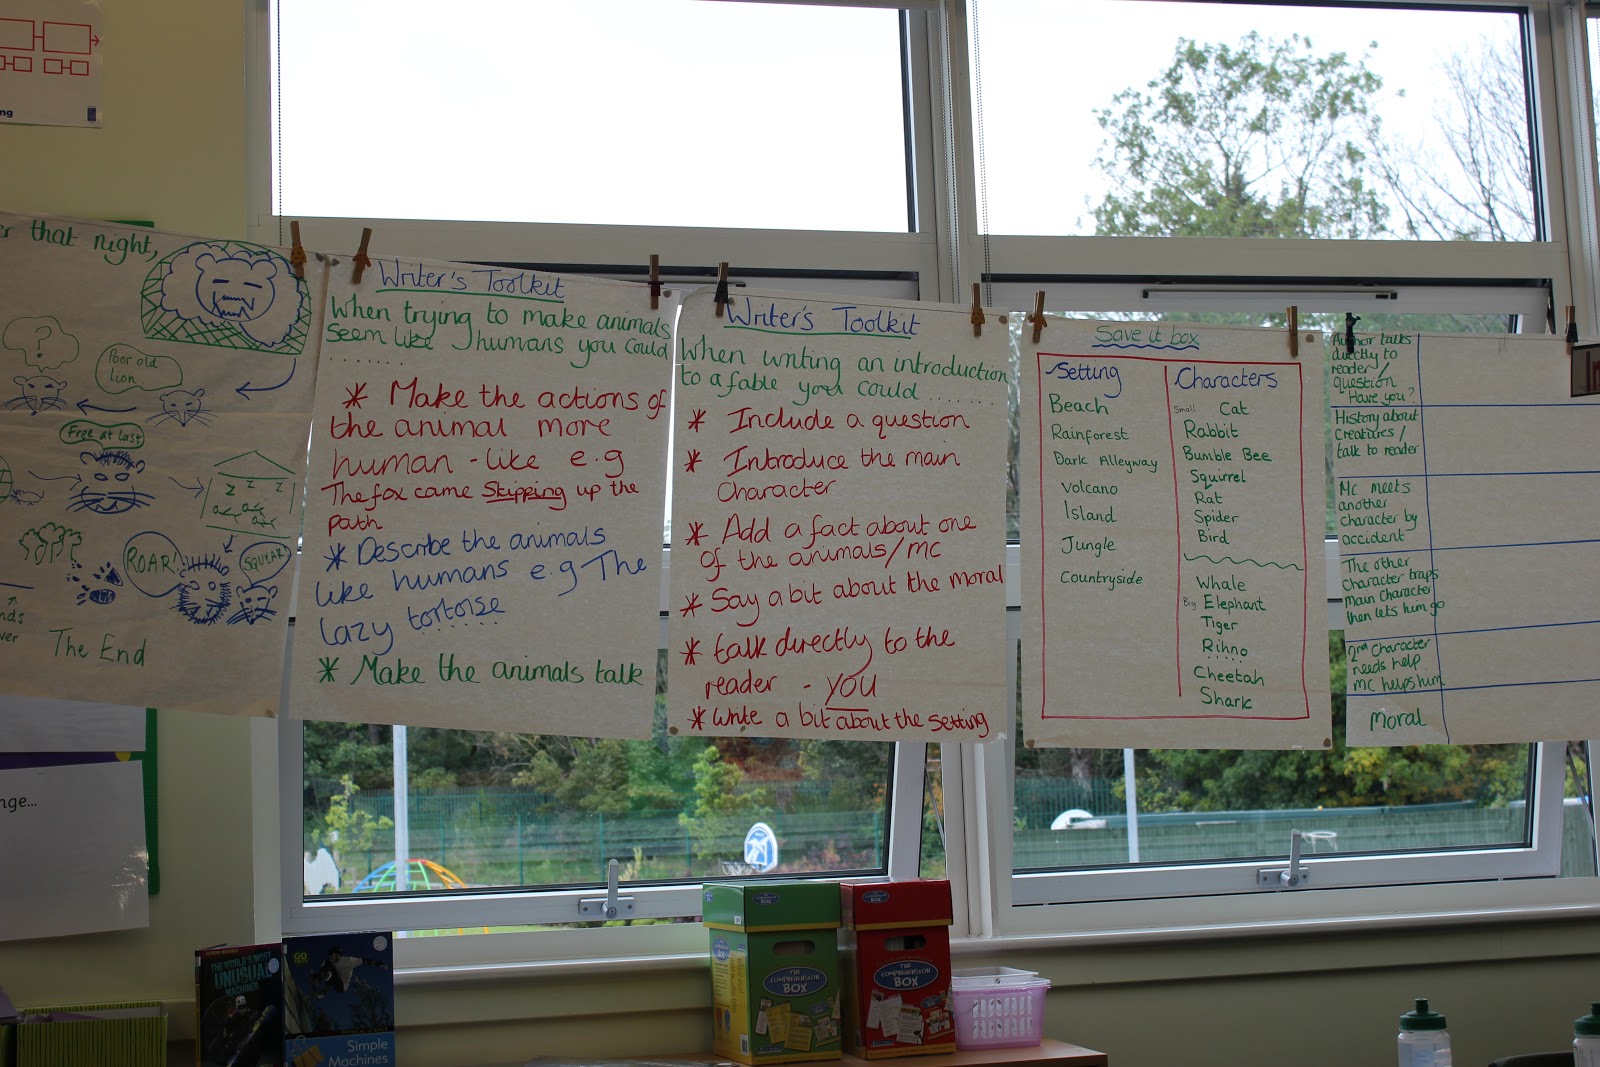 ng
er that night,
?
Poor old
lion
Free at last
z z z
ROAR!
SQUEAK!
The End
nge...
Writer's Toolkit
When trying to make animals
seem like humans you could
.......
* Make the actions of
the animal more
human-like e.g
The fox came Skipping up the
path
* Describe the animals
like humans e.g The
lazy tortoise
* Make the animals talk
Writer's Toolkit
When writing an introduction
to a fable you could ........
* Include a question
* Introduce the main
Character
* Add a fact about one
of the animals/MC
* Say a bit about the moral
* talk directly to the
reader - YOU
* Write a bit about the setting
Save it box
Setting
Beach
Rainforest
Dark Alleyway
Volcano
Island
Jungle
Countryside
Characters
Small Cat
Rabbit
Bumble Bee
Squirrel
Rat
Spider
Bird
Whale
Big Elephant
Tiger
Rihno
Cheetah
Shark
Author talks
directly to
reader/
question
Have you?
History about
Creatures/
talk to reader
MC meets
another
character by
accident
The other
character traps
main character
then lets him go
2nd Character
needs help
MC helps him
Moral
THE WORLD'S MOST
UNUSUAL
MACHINES
GO
Simple
Machines
THE
COMPREHENSION
BOX
THE
COMPREHENSION
BOX